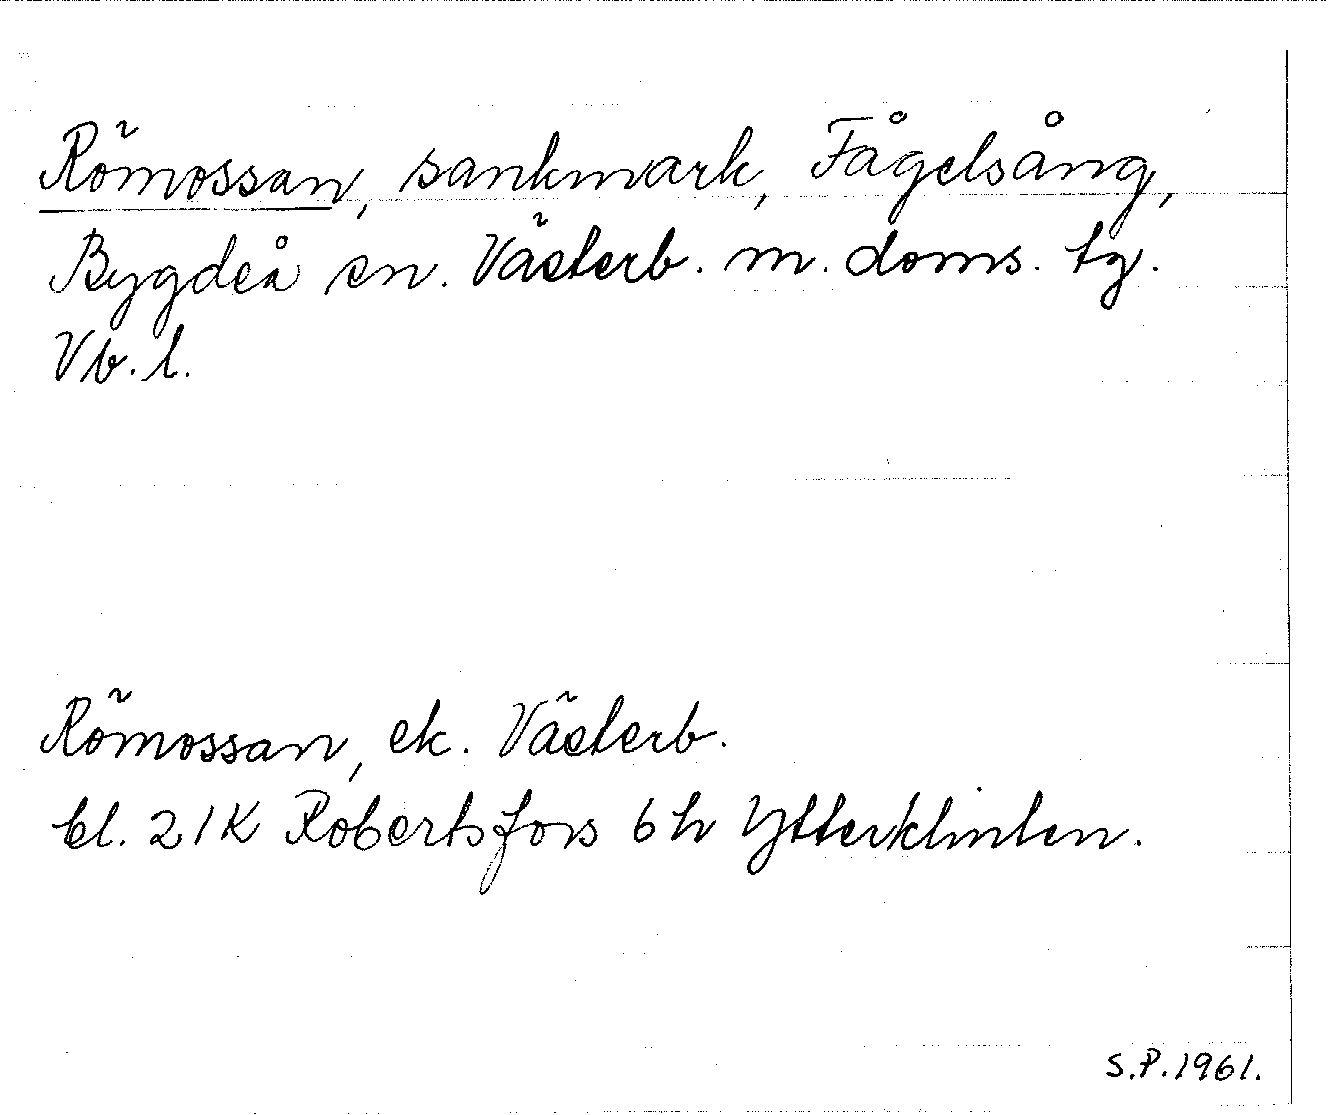 Römossan, sankmark, Fågelsång,
Bygdeå sn. Västerb. m. doms. tg.
Vb. l.
Römossan, ek. Västerb.
bl. 21K Robertsfors 6h Ytterklinten.
S.P. 1961.